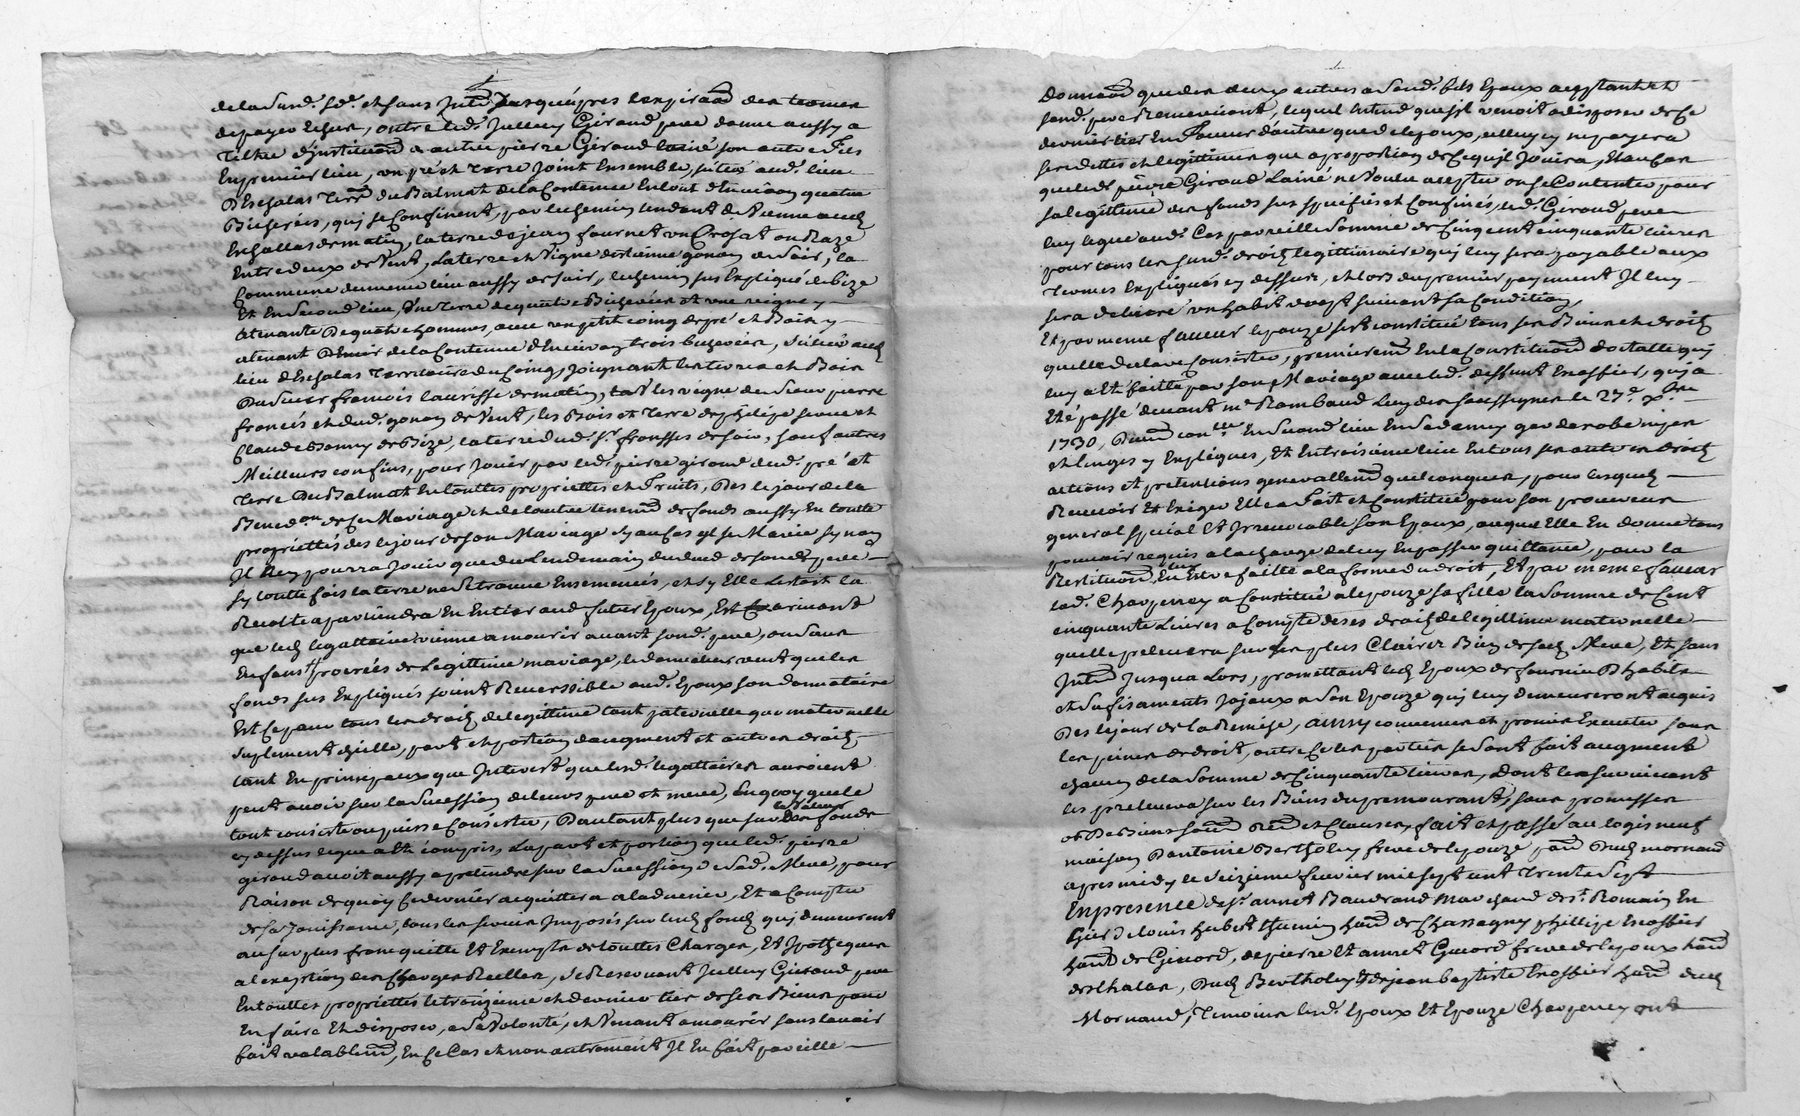 de la Susd. Sde. et sans Intd. Jusqu'apres l'expiraõn des termes
de payer Echus, outre led. Jullien Giraud pere donne aussy a
Tiltre d'jnstitutiõn a autre pierre Giraud lainé son autre Fils
En premier lieu, un pré et terre Joint Ensemble, scitué aud. lieu
D'Echalas Terrd. du Balmat de la Contenue En tout d'Environ quatre
Bicherées, qui se Confinent, par le chemin tendant de Vienne aud.
Eschallas de matin, la terre de jean fournet un Crosat ou Raze
Entre deux de Vent, la terre et Vigne d'estienne gonon de Soir, la
Commune du meme lieu aussy de soir, le chemin sus Expliqué de bize
Et En Second lieu, Une terre de quatre Bicherées et une vigne y
attenante De quatre hommes, avec un petit coing de pré et Bois y
attenant De mir de la Contenue d'Environ trois bicherées, scitué aud.
lieu d'Eschalas Territoire du Coing, Joignant les terres et Bois
Du Sieur francois laurisse de matin, les vigne du Sieur pierre
francés et dud. gonon de Vent, les Bois et terre de philipe et
Claude Bonny de Bize, la terre dud. Sr. frousses de soir, sauf autres
Meilleurs confins, pour Jouir par led. pierre giraud dud. pré et
terre Du Balmat En touttes proprietes et Fruits, Des le jour de la
Bened.on de se Mariage et de l'autre tenemt. de fonds aussy En toutte
proprietés des le jour de son Mariage Sy au Cas yl se Marie sy non
Il N'en pourra Jouir que du Lendemain du deced de sond. pere
Sy toutte fois la terre ne se trouve Ensemencée, et sy Elle L'etoit la
Recolte apartiendra En Entier aud. futur Epoux, Et arrivant
que led. legattaire vienne a mourir avant sond. pere, ou sans
Enfans procréés de Legittime mariage, le donnateur veut que les
fonds sus Expliqués soint Reversible aud. Epoux son donnataire
Est Ce pour tous les droits de legittime tant paternelle que maternelle
suplement d'ycelle, part et portion d'augment et autres droits
tant En principaux que Interest que lesd. legattaires auroient
peut avoir sur la Sucession de leurs pere et mere, En quoy que le
tout consiste ou puisse Consister, D'autant plus que sur la Valeur des fonds
cy dessus legue a Eté compris, La part et portion que led. pierre
giraud avoit aussy a pretendre sur la Sucession de Sad. Mere, pour
Raison de quoy Ce dernier acquittera a la d'venir, Et a Compter
de sa Jouissance, tous les servis Imposés sur lesd. fonds qui demeurent
au surplus franc quitte Et Exempts de touttes Charges, Et Ipotheques
a l'exception des Charges Reelles, se Reservant Jullien Giraud pere
En touttes proprietes le troizieme et dernier tier de ses Biens pour
En faire Et disposer, a Sa Volonté, et Venant a mourir sans l'avoir
fait valablemt, En Ce Cas et non autrement Il En fait pareille
Donnaõn que des deux autres a Sond. fils Epoux acceptant et
sond. pere Remerciant, lequel Entend que s'il venoit a disposer de Ce
dernier tier En Faveur d'autre que de lepoux, celluy cy ne payera
les dettes et legittimes que a proportion de Ce qu'il Jouira, Et au Cas
que led. pierre Giraud Lainé ne Voulu accepter ou se Contenter pour
sa legittime des fonds sus spécifiés et Confinés, led. Giraud pere
luy legue aud. Cas pareille Somme de Cinq cent cinquante livres
pour tous les susd. droits legittimaire qui luy sera payable aux
termes Expliqués cy dessus, et lors du premier payement Il luy
sera delivré un habit neuf suivant sa Condition,
Et par meme faveur lepouze s'est constitué tous ses Biens et droits
quelle declare Consister, premieremt En la Constitutiõn dottalle qui
luy a Eté faitte par son Mariage avec led. deffunt Enossier, qui a
Eté passé devant me Rambaud L'un des soussignes le 27.e x.bre
1730, En Second lieu En Ses danrées garderobe nipes
et linges y Expliqués, Et En troisieme lieu En tous ses autres droits
actions et pretentions generallemt quelconques, pour lesquels
Recevoir Et Exiger Elle a Fait et Constitué pour son procureur
general spécial Et Irrevocable son Epoux, auquel Elle En donne tous
pouvoir requis a la charge de luy En passer quittance, pour la
Restitutiõn En Estre faitte a la forme du droit, Et par meme faveur
lad. Charpenay a Constitué a lepouze sa fille la Somme de Cent
cinquante Livres a Compte de ses droits de legittime maternelle
quelle prelevera sur les plus Clairs Bien de sad. Mere, Et sans
Intd. Jusqu'a Lors, promettant led. Epoux de fournir D'habits
et sufisaments Jojaux a Son Epouze qui luy demeureront acquis
Des le jour de la Remise, ainsy convenus et promis Executer sous
les peines de droit, outre Ce les parties se sont fait augment
chacun de la Somme de Cinquante livres, Dont le survivant
les prelevera sur les Biens du premourant, sous promesses
ob. De Biens soum. Ren. et Clauses, fait et passé au logis neuf
maison D'antoine Bertholey frere de lepouze par. Dud. mornand
apres midy le seizieme fevrier mil sept cent Trente Sept
En presence de Sr. annet Baudrand Marchand de St. Romain En
Gier, louis hubert thurin habt. de Chassagny phillipe Enossier
habt. de Givord, de pierre Et annet Giraud frere de lepoux habt.
d'Echalas, Dud. Bertholey, & de jean baptiste Enossier habt. dud.
Mornand, Temoins lesd. Epoux Et Epouze Charpenay ont